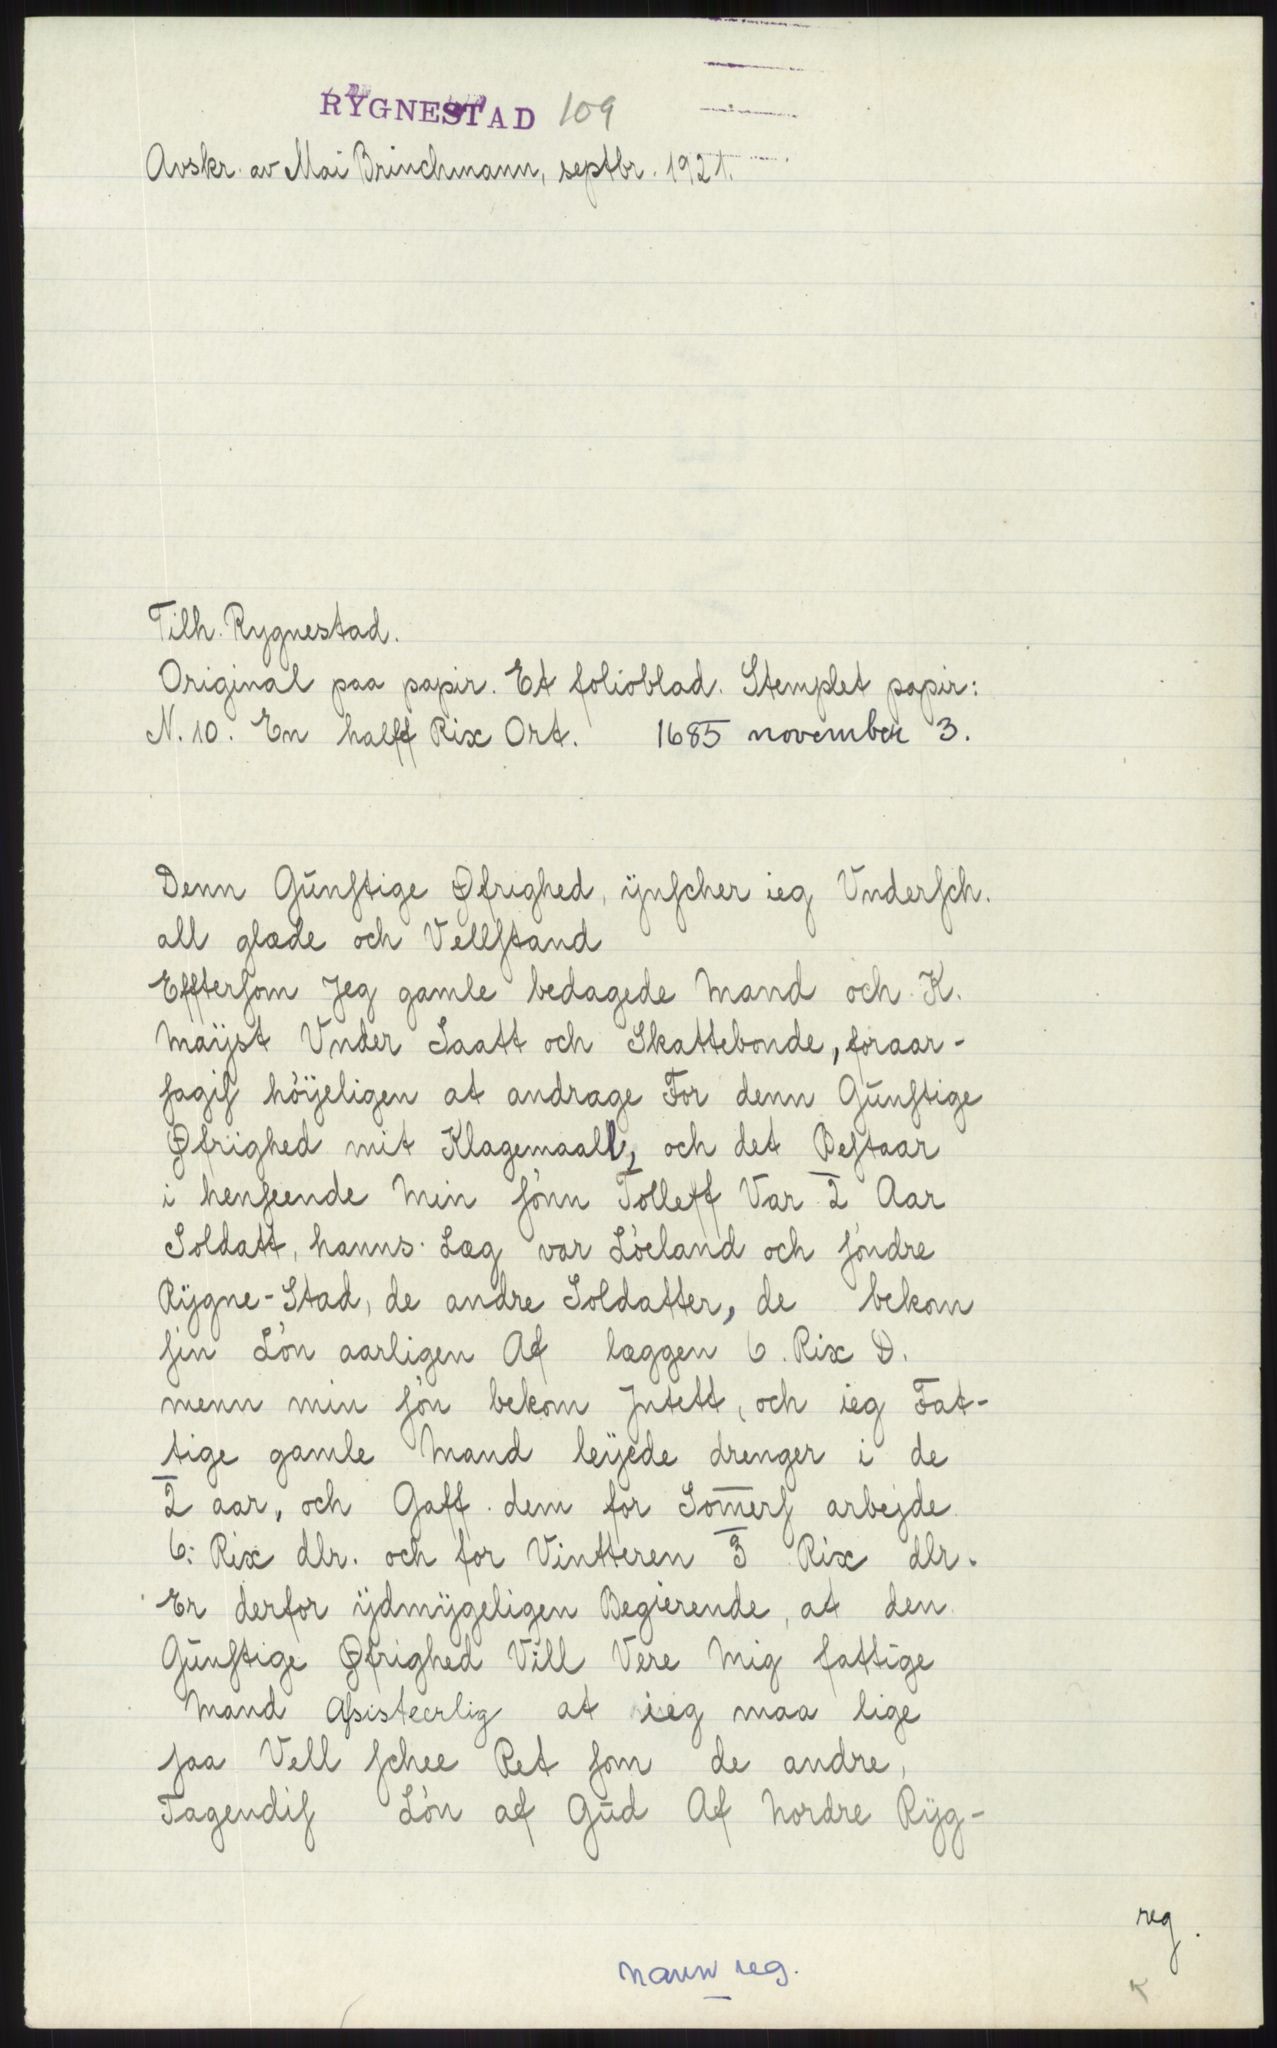 RYGNESTAD 109
Avskr. av Mai Brinchmann, septbr. 1921.
Tilh. Rygnestad.
Original paa papir. Et folioblad. Stemplet papir:
N. 10. En halff Rix Ort. 1685 november 3.
Denn Gunſtige Øfrighed, ÿnſcher ieg Vnderſch.
all glæde och Vellſtand
Effterſom Jeg gamle bedagede Mand och K.
Maÿst Vnder Saatt och Skattebonde, foraar-
ſagiſ höÿeligen at andrage For denn Gunſtige
Øfrighed mit Klagemaall, och det Beſtaar
i henſeende Min ſönn Tolleff Var 2 Aar
Soldatt, hanns Læg var Löeland och ſöndre
Rÿgne-Stad, de andre Soldatter, de bekom
ſin Lön aarligen Af læggen 6. Rix D.
menn min ſön bekom Jntett, och ieg Fat-
tige gamle Mand leÿede drenger i de
2 aar, och Gaff dem for Som̄erſ arbejde
6: Rix dlr. och for Vintteren 3 Rix dlr.
Er derfor ÿdmÿgeligen Begierende, at den
Gunſtige Øfrighed Vill Vere Mig fattige
Mand Aſsisteerlig at ieg maa lige
ſaa Vell ſchee Ret ſom de andre,
Tagendiſ Lön af Gud Af Nordre Rÿg-
reg.
navn reg.